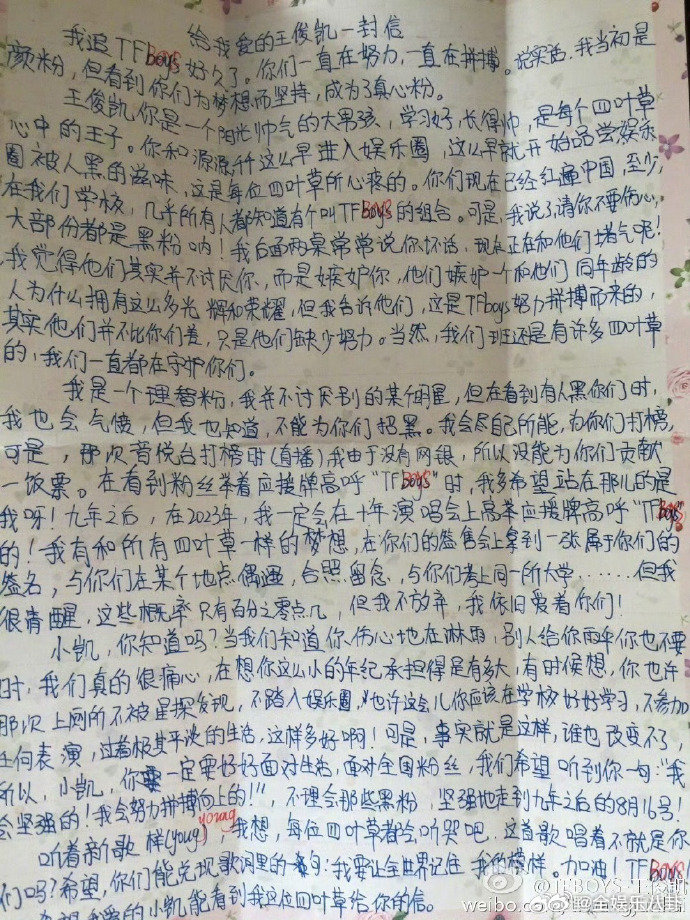 给我爱的王俊凯一封信
我追TFboys好久了。你们一直在努力,一直在拼搏。说实话,我当初是
颜粉,但看到你们为梦想而坚持,成为了真心粉。
王俊凯,你是一个阳光帅气的大男孩,学习好,长得帅,是每个四叶草
心中的王子。你和源源,千千这么早进入娱乐圈,这么早就开始品尝娱乐
圈被人黑的滋味,这是每位四叶草所心疼的。你们现在已经红遍中国,至少,
在我们学校,几乎所有人都知道有个叫TFBOYS的组合。可是,我说了请你不要伤心,
大部份都是黑粉呐!我后面两桌常常说你坏话,现在正在和他们堵气呢!
我觉得他们其实并不讨厌你,而是嫉妒你,他们嫉妒一个和他们同年龄的
人为什么拥有这么多光辉和荣耀,但我告诉他们,这是TFboys努力拼搏而来的,
其实他们并不比你们差,只是他们缺少努力。当然,我们班还是有许多四叶草
的,我们一直都在守护你们。
我是一个理智粉,我并不讨厌别的某个明星,但在看到有人黑你们时,
我也会气愤,但我也知道,不能为你们招黑。我会尽自己所能,为你们打榜,
可是,那次音悦台打榜时(直播)我由于没有网银,所以没能为你们贡献
一饭票。在看到粉丝举着应援牌高呼“TFBoys”时,我多希望站在那儿的是
我呀!九年之后,在2023年,我一定会在十年演唱会上高举应援牌高呼“TFBoys”
的!我有和所有四叶草一样的梦想,在你们的签售会上拿到一张属于你们的
签名,与你们在某个地点偶遇,合照留念,与你们考上同一所大学……但我
很清醒,这些概率只有百分之零点几,但我不放弃,我依旧爱着你们!
小凯,你知道吗?当我们知道你伤心地在淋雨,别人给你雨伞你也不要
时,我们真的很痛心,在想你这么小的年纪承担得是有多大,有时候想,你也许
那次上网所不被星探发现,不踏入娱乐圈,也许这会儿你应该在学校好好学习,不参加
任何表演,过着极其平淡的生活,这样多好啊!可是,事实就是这样,谁也改变不了,
所以,小凯,你一定要好好面对生活,面对全国粉丝,我们希望听到你一句:“我
会坚强的!我会努力拼搏向上的!”,不理会那些黑粉,坚强地走到九年之后的8月16号!
听着新歌样(young),我想,每位四叶草都会听哭吧,这首歌唱着不就是你
们吗?希望,你们能兑现歌词里的一句:我要让全世界记住我的榜样。加油!TFBOYS!
希望我爱的小凯能看到我这位四叶草给你的信。
@全娱乐八卦